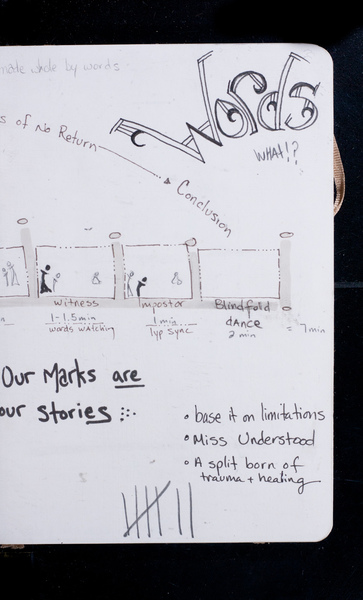 made whole by words
Words
WHAT!?
s of No Return
Conclusion
witness
1-1.5 min
words watching
Impostor
1 min
lyp sync
Blindfold
dance
2 min
= 7 min
Our Marks are
our Stories
• base it on limitations
• Miss Understood
• A split born of
trauma + healing